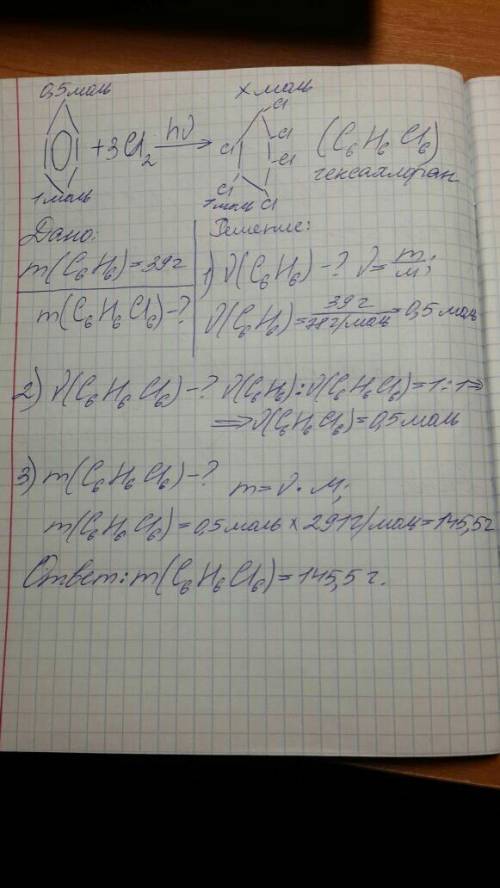 0,5 моль х моль
+ 3Cl₂ hν → Cl Cl Cl Cl Cl (C₆H₆Cl₆)
1 моль 1 моль гексахлоран
Дано: Решение:
m(C₆H₆) = 39 г 1) ν(C₆H₆) - ? ν = m/M;
m(C₆H₆Cl₆) - ? ν(C₆H₆) = 39 г / 78 г/моль = 0,5 моль
2) ν(C₆H₆Cl₆) - ? ν(C₆H₆) : ν(C₆H₆Cl₆) = 1 : 1 ⇒
⇒ ν(C₆H₆Cl₆) = 0,5 моль
3) m(C₆H₆Cl₆) - ? m = ν · M;
m(C₆H₆Cl₆) = 0,5 моль × 291 г/моль = 145,5 г
Ответ: m(C₆H₆Cl₆) = 145,5 г.